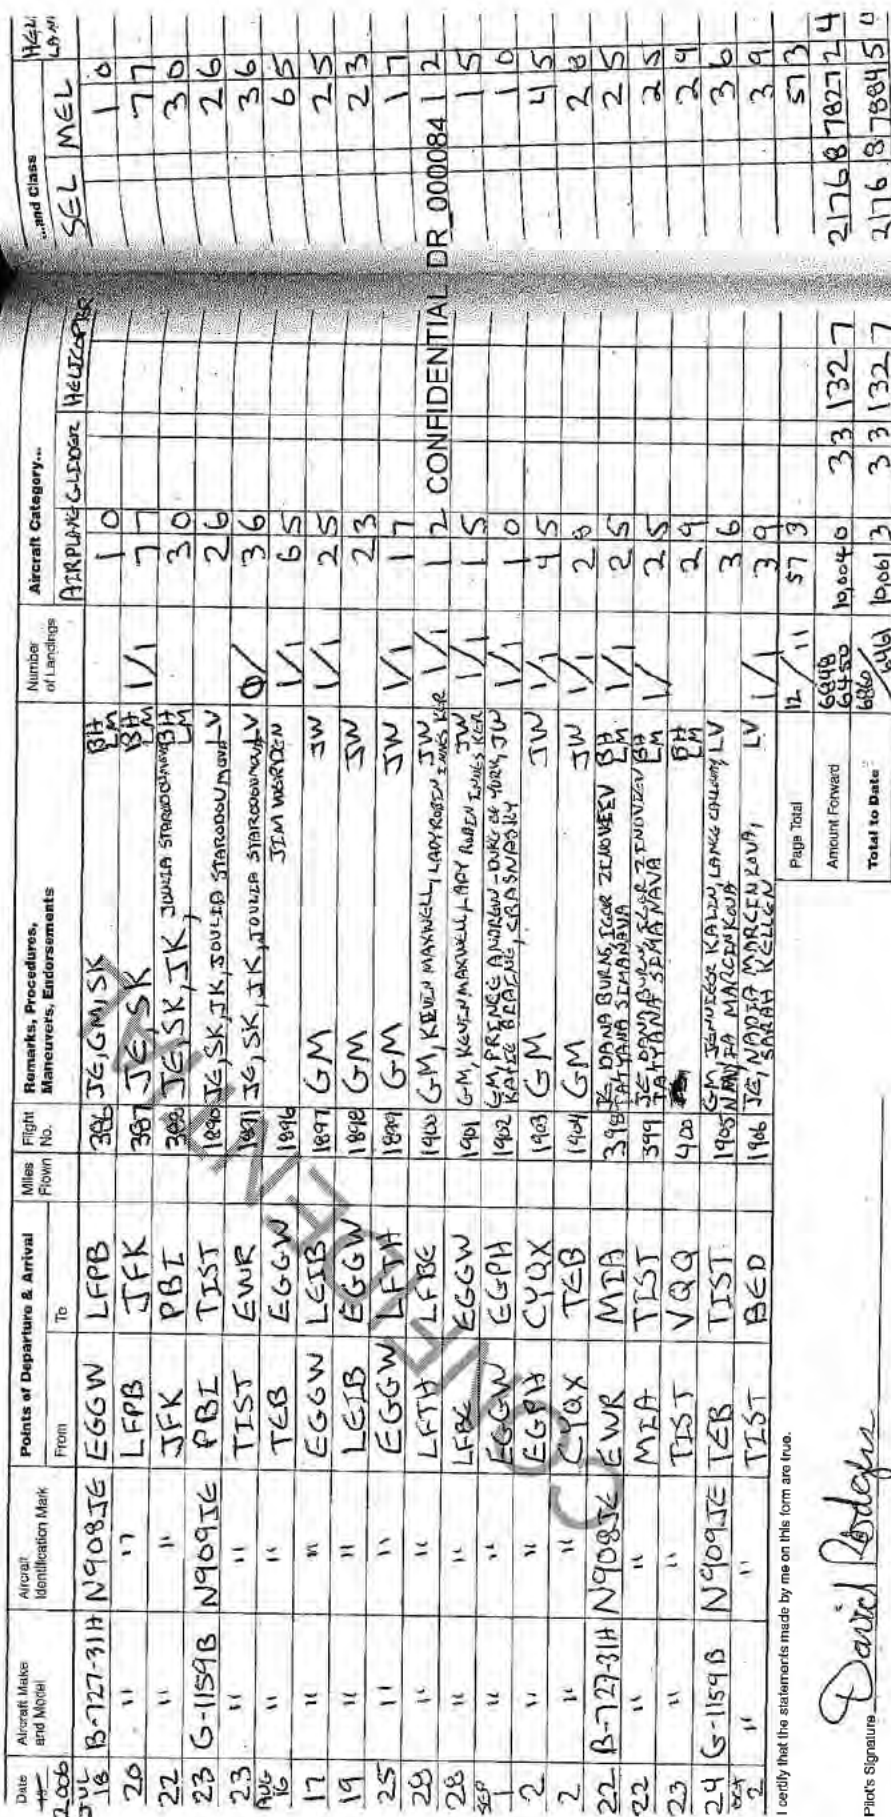 Date Aircraft Make and Model Aircraft Identification Mark Points of Departure & Arrival From To Miles Flown Flight No. Remarks, Procedures, Maneuvers, Endorsements Number of Landings Aircraft Category... AIRPLANE GLIDER HELICOPTER ...and Class SEL MEL
2006
JUL 18 B-727-31H N908JE EGGW LFPB 386 JE, GM, SK BH LM 1 0 1 0
20 " " LFPB JFK 387 JE, SK BH LM 1/1 7 7 7 7
22 " " JFK PBI 388 JE, SK, JK, JOULIA STARODOUMOVA BH LM 3 0 3 0
23 G-1159B N909JE PBI TIST 1890 JE, SK, JK, JOULIA STARODOUMOVA LV 2 6 2 6
23 " " TIST EWR 1891 JE, SK, JK, JOULIA STARODOUMOVA LV 0/ 3 6 3 6
AUG 16 " " TEB EGGW 1896 JIM WORDEN 1/1 6 5 6 5
17 " " EGGW LEIB 1897 GM JW 1/1 2 5 2 5
19 " " LEIB EGGW 1898 GM JW 2 3 2 3
25 " " EGGW LFTH 1899 GM JW 1/1 1 7 1 7
28 " " LFTH LFBE 1900 GM, KEVIN MAXWELL, LADY ROBIN INNES KER JW 1/1 1 2 1 2
28 " " LFBE EGGW 1901 GM, KEVIN MAXWELL, LADY ROBIN INNES KER JW 1/1 1 5 1 5
SEP 1 " " EGGW EGPH 1902 GM, PRINCE ANDREW - DUKE OF YORK, JW 1/1 1 0 1 0
2 " " EGPH CYQX 1903 GM JW 1/1 4 5 4 5
2 " " CYQX TEB 1904 GM JW 1/1 2 8 2 8
22 B-727-31H N908JE EWR MIA 398 JE, DANA BURNS, IGOR ZINOVIEV BH LM 1/1 2 5 2 5
22 " " MIA TIST 399 JE, DANA BURNS, IGOR ZINOVIEV BH LM 1/ 2 5 2 5
23 " " TIST VQQ 400 BH LM 2 9 2 9
24 G-1159B N909JE TEB TIST 1905 GM, JENNIFER KALIN, NADIA MARCINKOVA LV 3 6 3 6
OCT 2 " " TIST BED 1906 JE, NADIA MARCINKOVA, SARAH KELLEN LV 1/1 3 9 3 9
CONFIDENTIAL
CONFIDENTIAL DR_000084
I certify that the statements made by me on this form are true.
Page Total 12/11 57 3 57 3
Amount Forward 6848 6450 10,004 0 3 3 132 7 2176 8 7827 2 4
Pilot's Signature David Rodgers
Total to Date 6860 6461 10,061 3 3 3 132 7 2176 8 7884 5